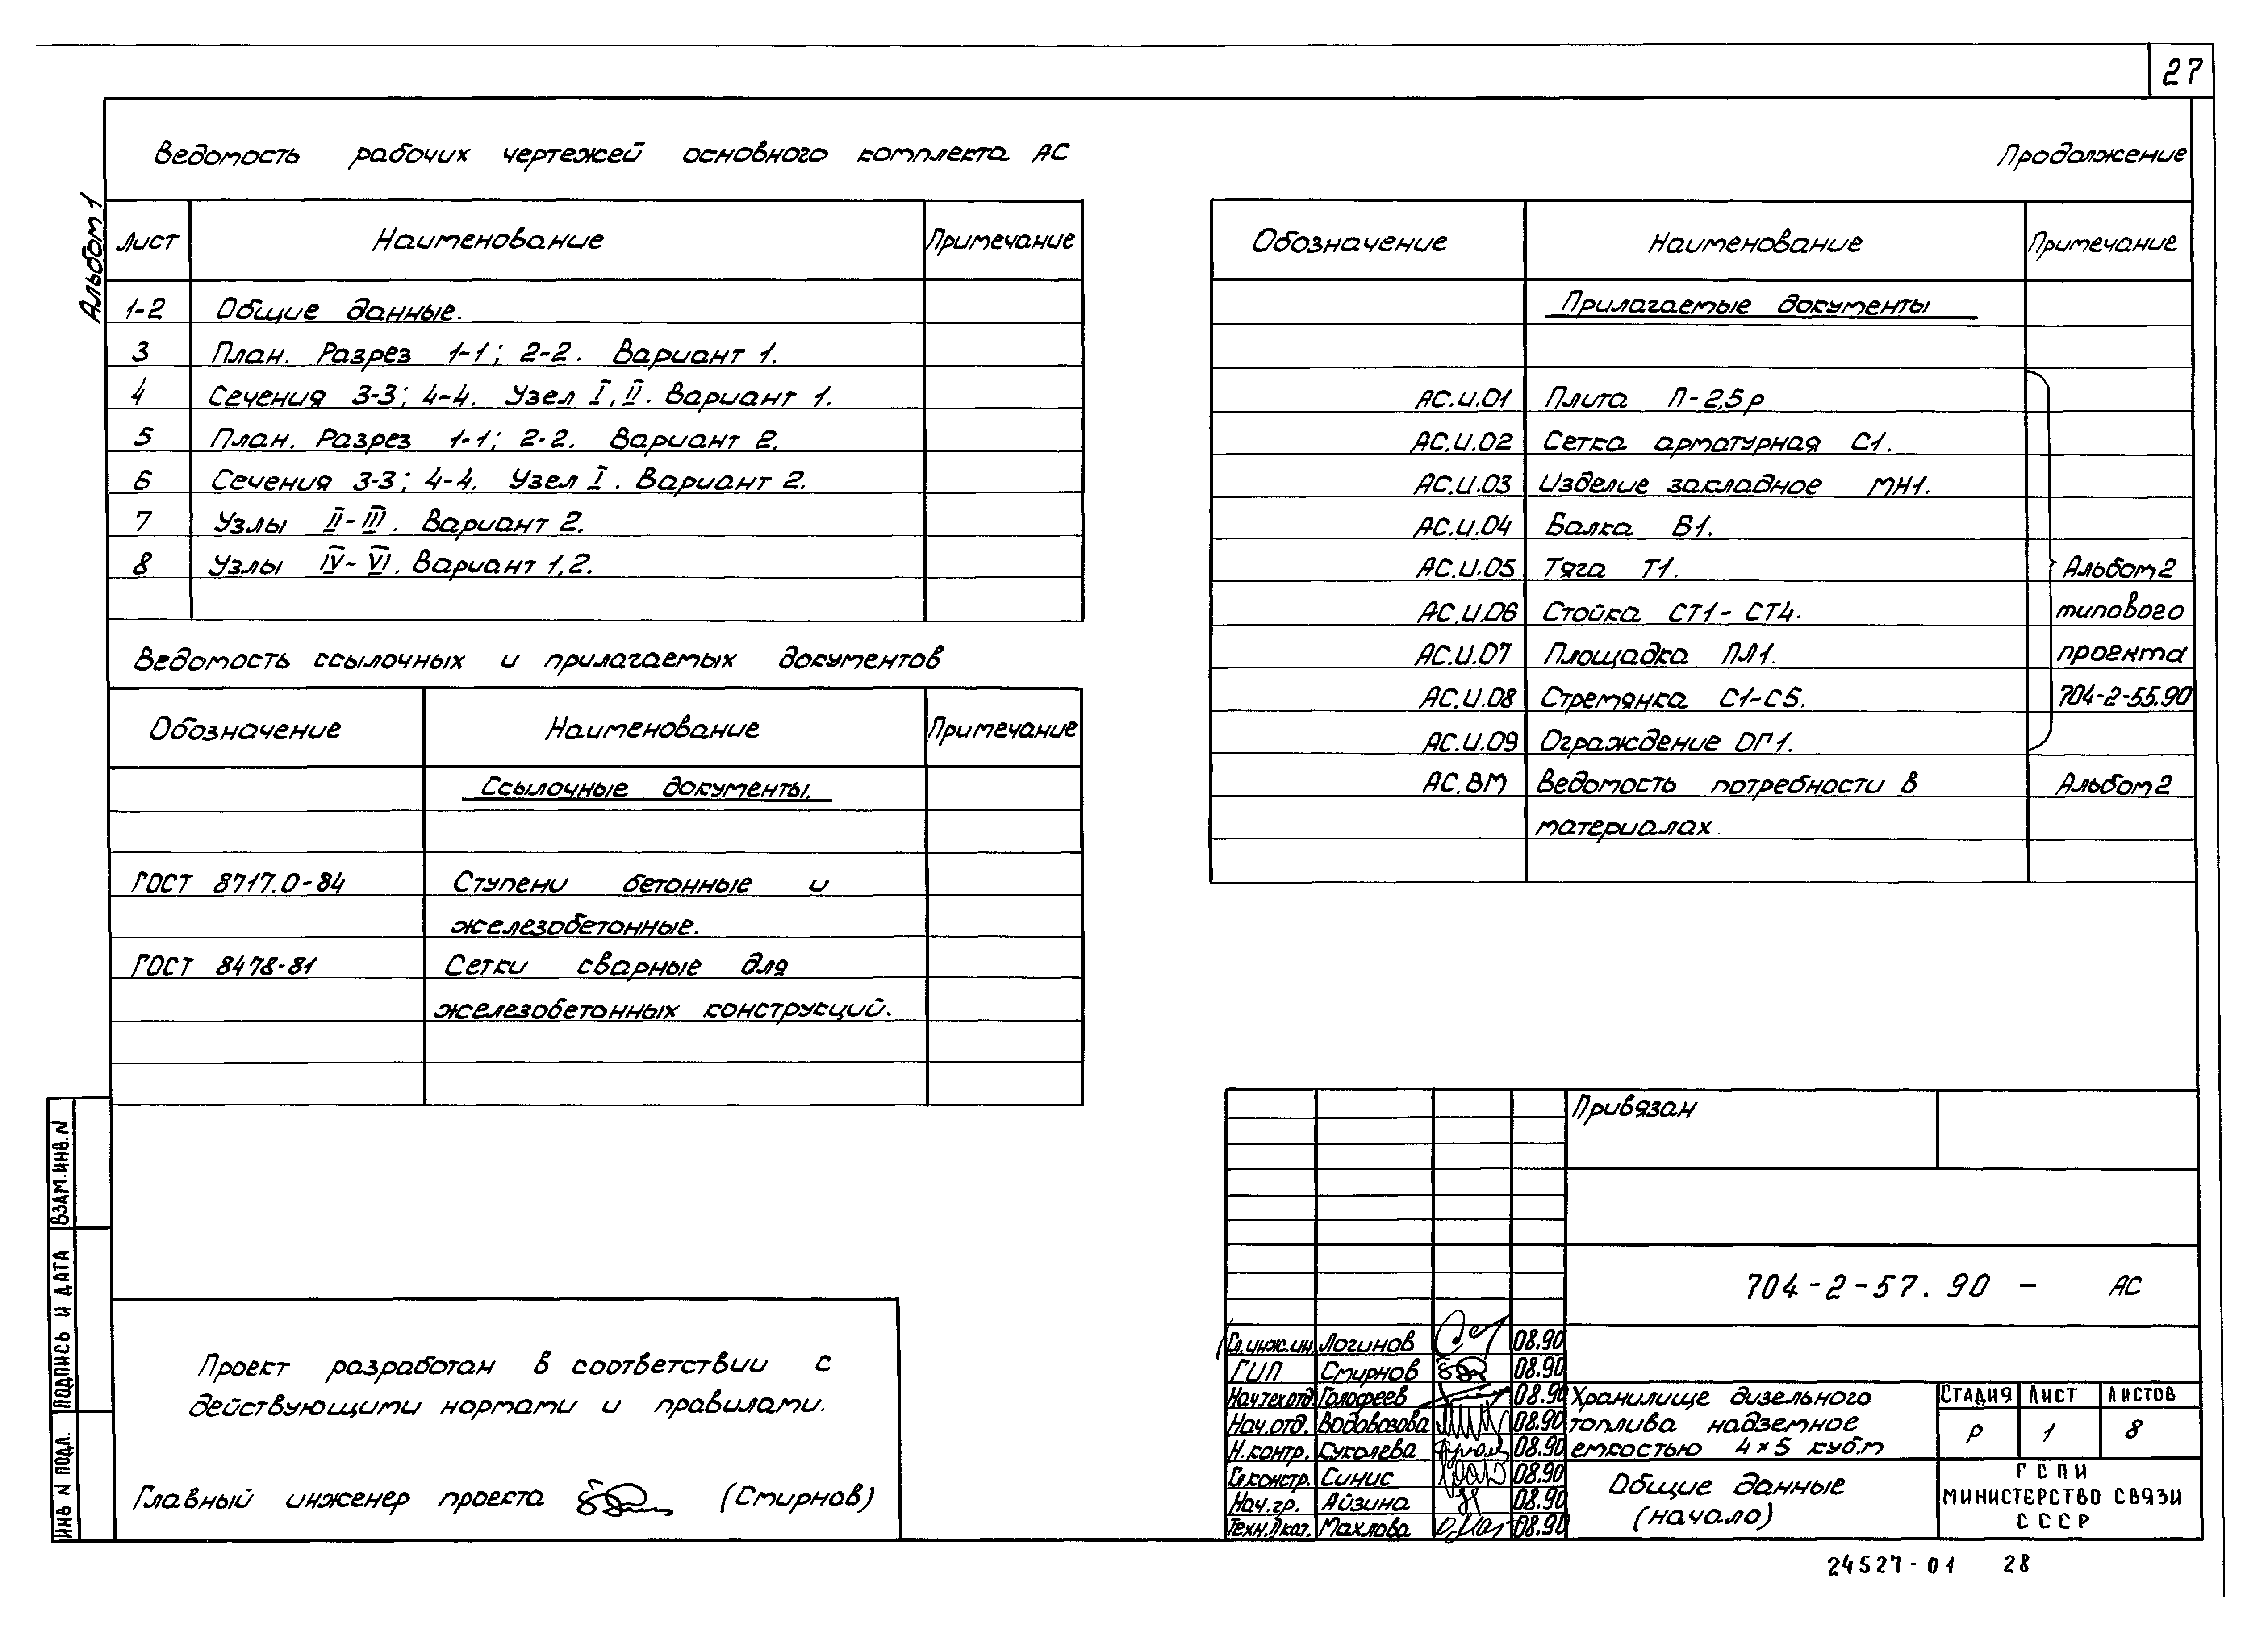 27
Альбом 1
Ведомость рабочих чертежей основного комплекта АС
Лист Наименование Примечание
1-2 Общие данные.
3 План. Разрез 1-1; 2-2. Вариант 1.
4 Сечения 3-3; 4-4. Узел I, II. Вариант 1.
5 План. Разрез 1-1; 2-2. Вариант 2.
6 Сечения 3-3; 4-4. Узел I. Вариант 2.
7 Узлы II-III. Вариант 2.
8 Узлы IV-VI. Вариант 1,2.
Ведомость ссылочных и прилагаемых документов
Обозначение Наименование Примечание
Ссылочные документы.
ГОСТ 8717.0-84 Ступени бетонные и
железобетонные.
ГОСТ 8478-81 Сетки сварные для
железобетонных конструкций.
Продолжение
Обозначение Наименование Примечание
Прилагаемые документы
АС.И.01 Плита П-2,5р
АС.И.02 Сетка арматурная С1.
АС.И.03 Изделие закладное МН1.
АС.И.04 Балка Б1.
АС.И.05 Тяга Т1. Альбом 2
АС.И.06 Стойка СТ1-СТ4. типового
АС.И.07 Площадка ПЛ1. проекта
АС.И.08 Стремянка С1-С5. 704-2-55.90
АС.И.09 Ограждение ОГ1.
АС.ВМ Ведомость потребности в Альбом 2
материалах.
Проект разработан в соответствии с
действующими нормами и правилами.
Главный инженер проекта (Смирнов)
ВЗАМ.ИНВ.N
ПОДПИСЬ И ДАТА
ИНВ N ПОДЛ.
Привязан
704-2-57.90 - АС
Гл.инж.ин. Логинов 08.90
ГИП Смирнов 08.90
Нач.тех.отд. Голофеев 08.90
Нач.отд. Водовозова 08.90
Н.контр. Суколева 08.90
Гл.констр. Синис 08.90
Нач.гр. Айзина 08.90
Техн.II кат. Махлова 08.90
Хранилище дизельного
топлива надземное
емкостью 4×5 куб.м
СТАДИЯ ЛИСТ ЛИСТОВ
Р 1 8
Общие данные
(начало)
ГСПИ
МИНИСТЕРСТВО СВЯЗИ
СССР
24527-01 28